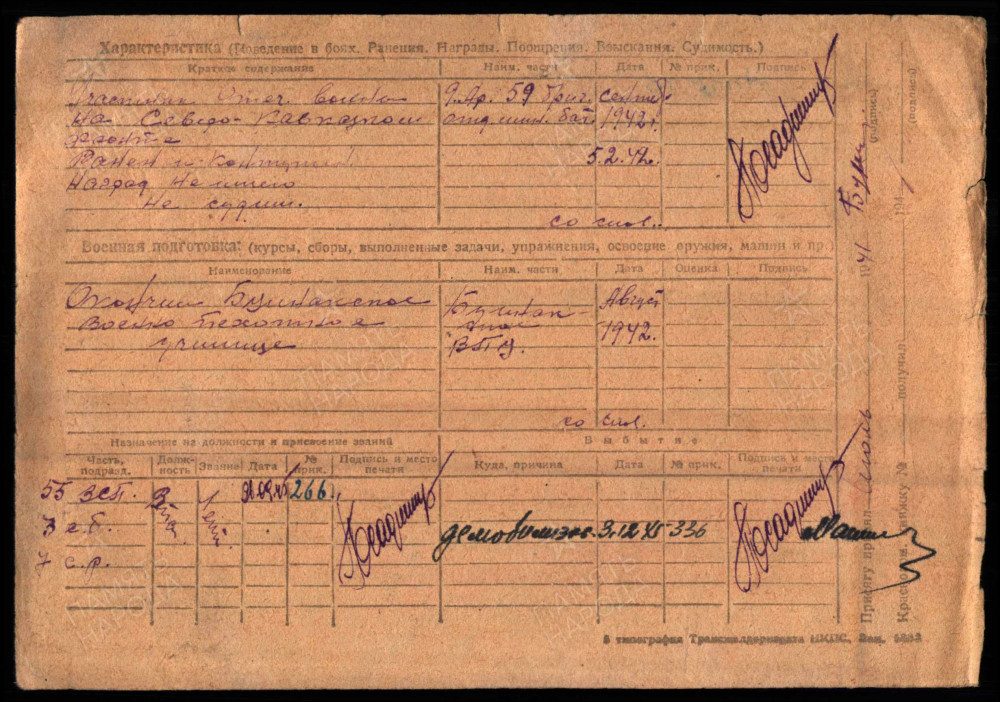 Характеристика (Поведение в боях. Ранения. Награды. Поощрения. Взыскания. Судимость.)
Краткое содержание Наим. части Дата № прик. Подпись
Участник Отеч. войны 59 бриг. сентябр
на Северо-Кавказском отд. мин. бат. 1942 г.
фронте
Ранен и контужен 5.2.42г.
Наград не имеет
не судим.
со слов.
Военная подготовка: (курсы, сборы, выполненные задачи, упражнения, освоение оружия, машин и пр.)
Наименование Наим. части Дата Оценка Подпись
Окончил Буйнакское Буйнак- Август
военно пехотное ское 1942г.
училище ВПУ.
со слов.
Назначение на должности и присвоение званий Выбытие
Часть, подразд. Долж- ность Звание Дата № прик. Подпись и место печати Куда, причина Дата № прик. Подпись и место печати
55 ЗСП. 266.
3 с.б. демобилизов. 3.12.45 336
7 с.р.
Принял присягу июль 1941
Красноарм. книжку № получил 194
(подпись)
(подпись)
ПАМЯТЬ НАРОДА
ПАМЯТЬ НАРОДА
ПАМЯТЬ НАРОДА
ПАМЯТЬ НАРОДА
5 типография Трансжелдориздата НКПС. Зак.